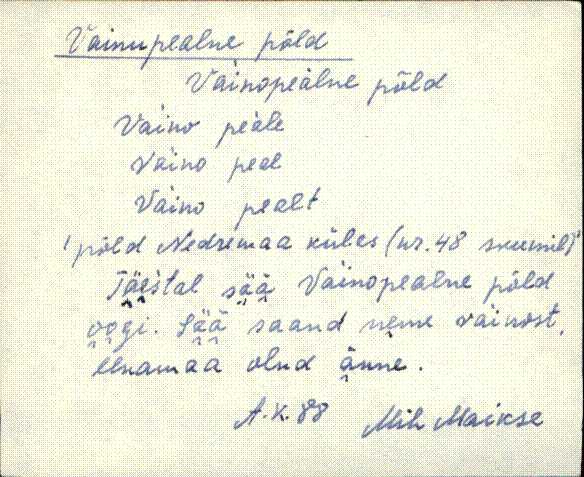 Vainupealne põld
Vainopeàlne põld
Vaino peàle
Vaino peal
Vaino pealt
'põld Nedremaa küĺes (nr. 48 skeemil)'
Täe̬stal sä̬ä̬ Vainopealne põld
o̬o̬gi. Sä̬ä̬ saand ne̬me vainost,
llnamaa olnd ä̬nne.
A.K. 88 Mih Maikse